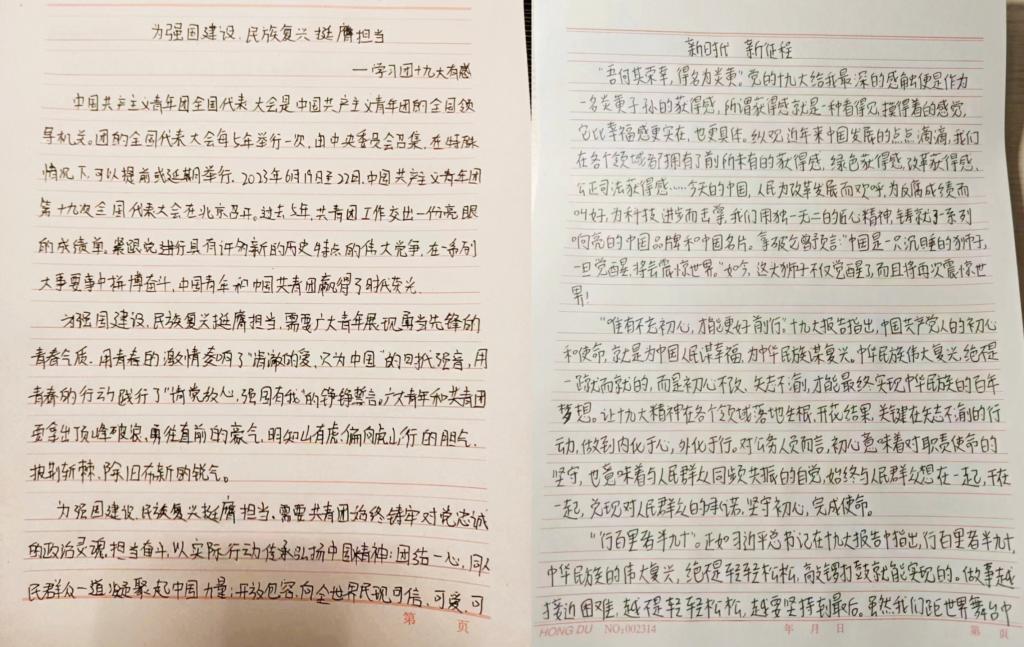 为强国建设、民族复兴挺膺担当
—学习团十九大有感
中国共产主义青年团全国代表大会是中国共产主义青年团的全国领
导机关。团的全国代表大会每5年举行一次,由中央委员会召集。在特殊
情况下,可以提前或延期举行。2023年6月19日至22日,中国共产主义青年团
第十九次全国代表大会在北京召开。过去5年,共青团工作交出一份亮眼
的成绩单。紧跟党进行具有许多新的历史特点的伟大党争,在一系列
大事要事中拼搏奋斗,中国青年和中国共青团赢得了时代荣光。
为强国建设、民族复兴挺膺担当,需要广大青年展现勇当先锋的
青春气质。用青春的激情奏响了“清澈的爱,只为中国”的时代强音,用
青春的行动践行了“请党放心,强国有我”的铮铮誓言。广大青年和共青团
要拿出顶峰破浪、勇往直前的豪气,明知山有虎、偏向虎山行的胆气,
披荆斩棘、除旧布新的锐气。
为强国建设、民族复兴挺膺担当,需要共青团始终铸牢对党忠诚
的政治灵魂。担当奋斗,以实际行动传承弘扬中国精神;团结一心,同人
民群众一道凝聚起中国力量;开放包容,向全世界展现可信、可爱、可
第 页
新时代 新征程
“吾何其荣幸,得名为炎黄”。党的十九大给我最深的感触便是作为
一名炎黄子孙的获得感,所谓获得感就是一种看得见,摸得着的感觉,
它比幸福感更实在,也更具体。纵观近年来中国发展的点点滴滴,我们
在各个领域都拥有了前所未有的获得感,绿色获得感,改革获得感,
公正司法获得感……今天的中国,人民为改革发展而欢呼,为反腐成绩而
叫好,为科技进步而击掌,我们用独一无二的匠心精神,铸就了一系列
响亮的中国品牌和中国名片。拿破仑曾预言:“中国是一只沉睡的狮子,
一旦觉醒,将会震惊世界。”如今,这头狮子不仅觉醒了,而且将再次震惊世
界!
“唯有不忘初心,才能更好前行”,十九大报告指出,中国共产党人的初心
和使命,就是为中国人民谋幸福,为中华民族谋复兴。中华民族伟大复兴,绝不是
一蹴而就的,而是初心不改、矢志不渝,才能最终实现中华民族的百年
梦想。让十九大精神在各个领域落地生根,开花结果,关键在矢志不渝的行
动,做到内化于心,外化于行。对公务人员而言,初心意味着对职责使命的
坚守,也意味着与人民群众同频共振的自觉,始终与人民群众想在一起,干在
一起,兑现对人民群众的承诺,坚守初心,完成使命。
“行百里者半九十”。正如习近平总书记在十九大报告中指出,行百里者半九十,
中华民族的伟大复兴,绝不是轻轻松松,敲锣打鼓就能实现的。做事越
接近困难,越不是轻轻松松,越要坚持到最后。虽然我们距世界舞台中
HONG DU NO:002314 年 月 日 第 页